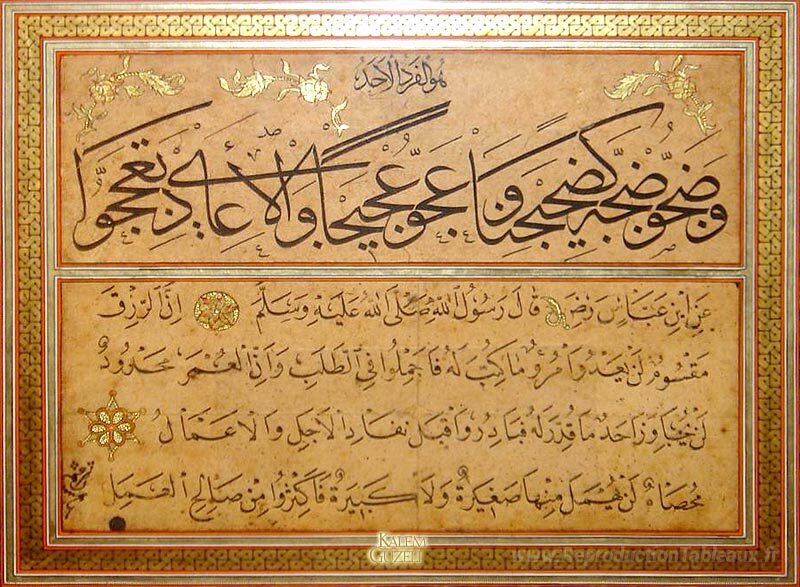 هو الفرد الاحد
وضجو ضجة كضجيجنا وعجو عجيجا والاعادي تعججوا
عن ابن عباس رضـ قال رسول الله صلى الله عليه وسلم ان الرزق
مقسوم لن يعدوا مرؤ ما كتب له فاجملوا في الطلب وان العمر محدود
لن يجاوز احد ما قدر له فبادروا قبل نفاد الاجل والاعمال
محصاة لن يهمل منها صغيرة ولا كبيرة فاكثروا من صالح العمل
KALEM
GUZELI
www.ReproductionTableaux.fr